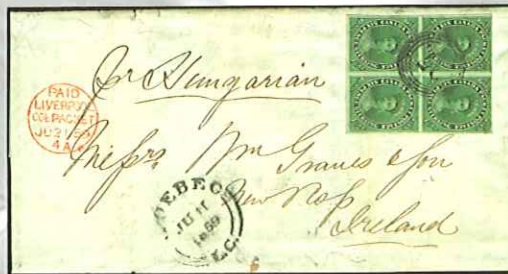 Pr Hungarian
PAID
LIVERPOOL
COL PACKET
JU 21 59
4 A
Messrs Wm Graves & Son
New Ross
Ireland
QUEBEC
JU 11
1859
L.C.